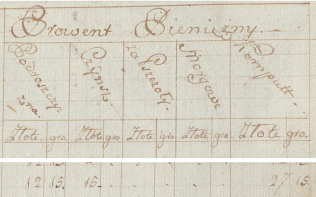 Prowent Pieniezny.
Podroszczyzna. Czynsz. za Pszczoły. Morgowe Komputt.
Złote gro. Złote gro. Złote gro. Złote gro. Złote gro.
12 15. 15. 27 15